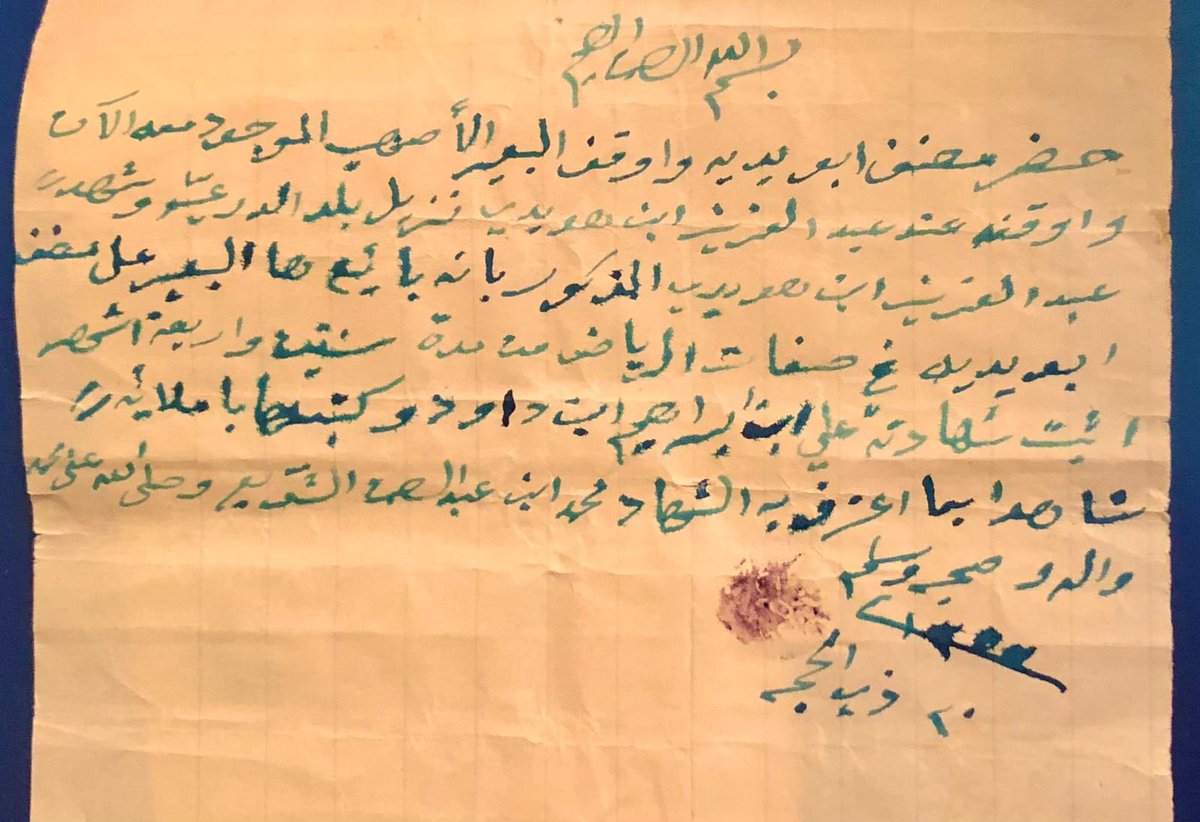 بسم الله الرحمن الرحيم
حضر مصنف ابو يديه واوقف البعير الأصهب الموجود معه الآن
واوقفه عند عبد العزيز ابن هويدي نزيل بلد الدرعيه وشهد
عبد العزيز ابن هويدي المذكور بانه بايع هاالبعير على مصنف
ابو يديه في صفات الرياض من مدة سنتين واربعة اشهر
اثبت شهادته علي ابن ابراهيم ابن داود وكتبتها باملائه
شاهدا بما اعترف به الشهاد محمد ابن عبد الرحمن الشويعر وصلى الله على محمد
واله وصحبه وسلم
٢٠ ذي الحجه